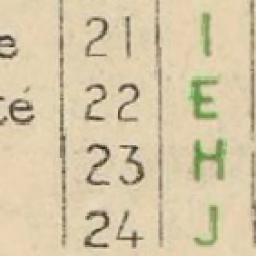 e 21 I
té 22 E
23 H
24 J